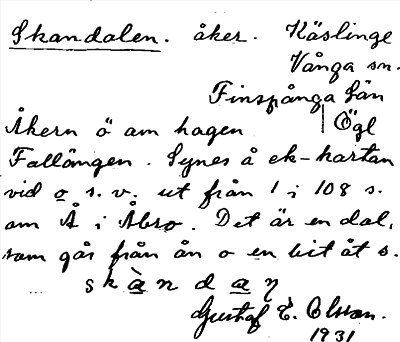 Skandalen. åker. Käslinge
Vånga sn.
Finspånga län
Ögl
Åkern ö om hagen
Fallängen. Synes å ek-kartan
vid o s. v. ut från 1 i 108 s.
om Å i Åbro. Det är en dal,
som går från ån o en bit åt s.
skàndaη
Gustaf E. Olsson.
1931